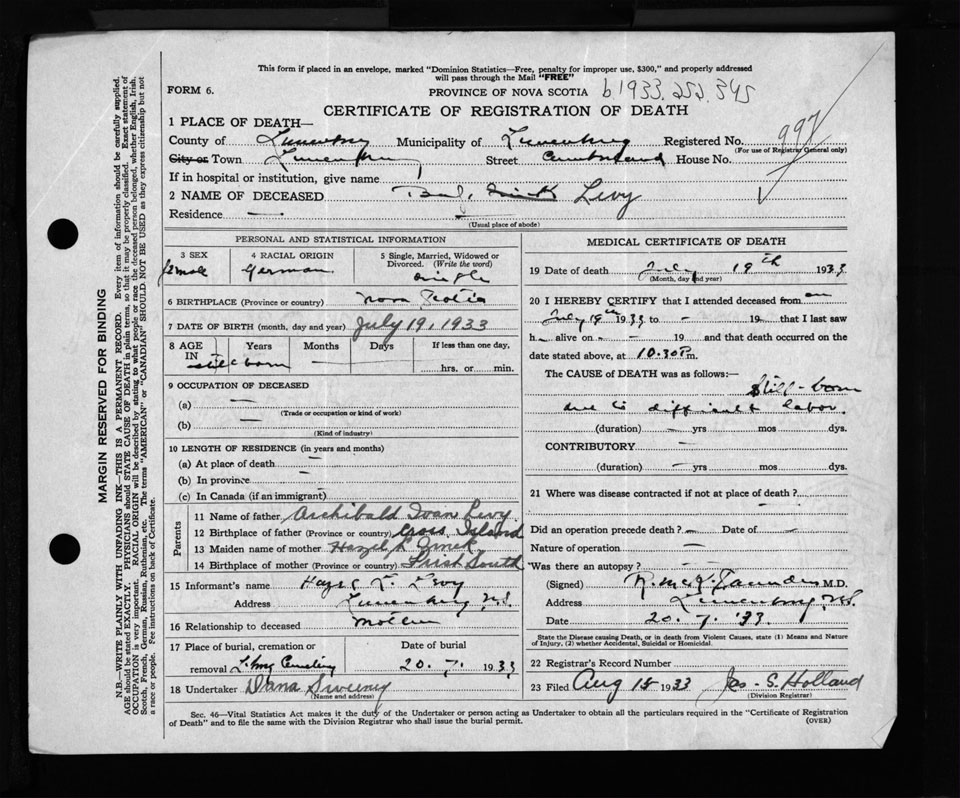 This form if placed in an envelope, marked "Dominion Statistics—Free, penalty for improper use, $300," and properly addressed
will pass through the Mail "FREE"
FORM 6.
PROVINCE OF NOVA SCOTIA b1933.252.345
CERTIFICATE OF REGISTRATION OF DEATH
1 PLACE OF DEATH—
County of Lunenburg Municipality of Lunenburg Registered No. 997
(For use of Registrar General only)
City or Town Lunenburg Street Cumberland House No.
If in hospital or institution, give name
2 NAME OF DECEASED Levy
Residence —
(Usual place of abode)
PERSONAL AND STATISTICAL INFORMATION
3 SEX female
4 RACIAL ORIGIN German
5 Single, Married, Widowed or Divorced. (Write the word) single
6 BIRTHPLACE (Province or country) Nova Scotia
7 DATE OF BIRTH (month, day and year) July 19, 1933
8 AGE IN Years Months Days If less than one day,
still born — hrs. or min.
9 OCCUPATION OF DECEASED
(a) —
(Trade or occupation or kind of work)
(b) —
(Kind of industry)
10 LENGTH OF RESIDENCE (in years and months)
(a) At place of death —
(b) In province —
(c) In Canada (if an immigrant) —
Parents
11 Name of father Archibald Ivan Levy
12 Birthplace of father (Province or country) Cross Island
13 Maiden name of mother Hazel
14 Birthplace of mother (Province or country) First South
15 Informant's name Hazel Levy
Address Lunenburg, N.S.
16 Relationship to deceased mother
17 Place of burial, cremation or removal Cemetery
Date of burial 20. 7. 1933
18 Undertaker Dana Sweeney
(Name and address)
MEDICAL CERTIFICATE OF DEATH
19 Date of death July 19th 1933
(Month, day and year)
20 I HEREBY CERTIFY that I attended deceased from on
July 19th 1933 to — 19 — that I last saw
h — alive on — 19 and that death occurred on the
date stated above, at 10.30 P.m.
The CAUSE of DEATH was as follows:—
Still-born
due to difficult labor.
(duration) — yrs mos dys.
CONTRIBUTORY —
(duration) — yrs mos dys.
21 Where was disease contracted if not at place of death?
Did an operation precede death? — Date of —
Nature of operation —
Was there an autopsy? —
(Signed) Saunders M.D.
Address Lunenburg, N.S.
Date 20. 7. 33.
State the Disease causing Death, or in death from Violent Causes, state (1) Means and Nature
of Injury, (2) whether Accidental, Suicidal or Homicidal.
22 Registrar's Record Number
23 Filed Aug 15 1933 Jas. S. Holland
(Division Registrar)
Sec. 46—Vital Statistics Act makes it the duty of the Undertaker or person acting as Undertaker to obtain all the particulars required in the "Certificate of Registration
of Death" and to file the same with the Division Registrar who shall issue the burial permit.
(OVER)
MARGIN RESERVED FOR BINDING
N.B.—WRITE PLAINLY WITH UNFADING INK—THIS IS A PERMANENT RECORD. Every item of information should be carefully supplied.
AGE should be stated EXACTLY. PHYSICIANS should STATE CAUSE OF DEATH in plain terms, so that it may be properly classified. Exact statement of
OCCUPATION is very important. RACIAL ORIGIN will be described by stating to what people or race the deceased person belonged, whether English, Irish,
Scotch, French, German, Russian, Ruthenian, etc. The terms "AMERICAN" or "CANADIAN" SHOULD NOT BE USED as they express citizenship but not
a race or people. See instructions on back of Certificate.